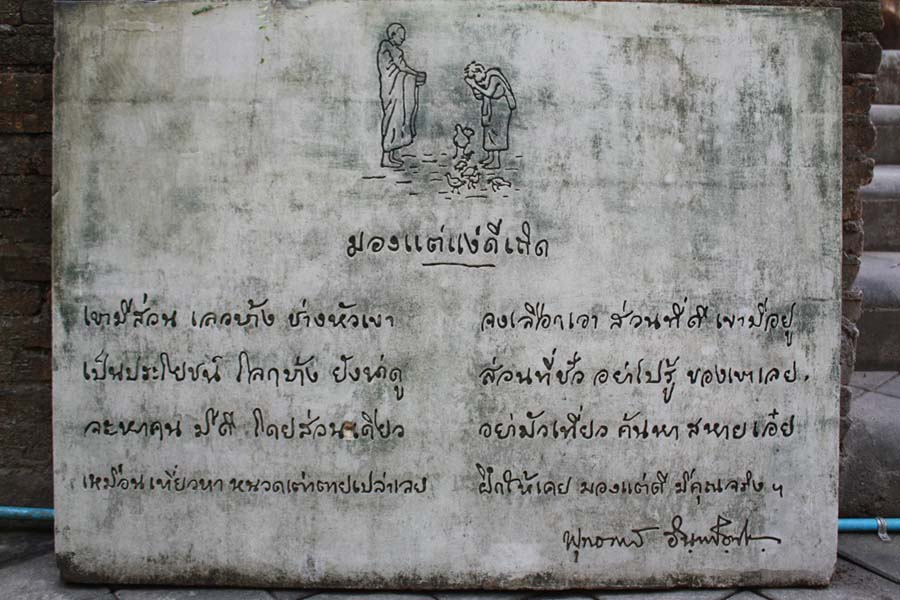 มองแต่แง่ดีเถิด
เขามีส่วน เลวบ้าง ช่างหัวเขา จงเลือกเอา ส่วนที่ดี เขามีอยู่
เป็นประโยชน์ โลกบ้าง ยังน่าดู ส่วนที่ชั่ว อย่าไปรู้ ของเขาเลย.
จะหาคน มีดี โดยส่วนเดียว อย่ามัวเที่ยว ค้นหา สหายเอ๋ย
เหมือนเที่ยวหา หนวดเต่า ตายเปล่าเลย ฝึกให้เคย มองแต่ดี มีคุณจริง ฯ
พุทธทาส อินฺทปญฺโญ